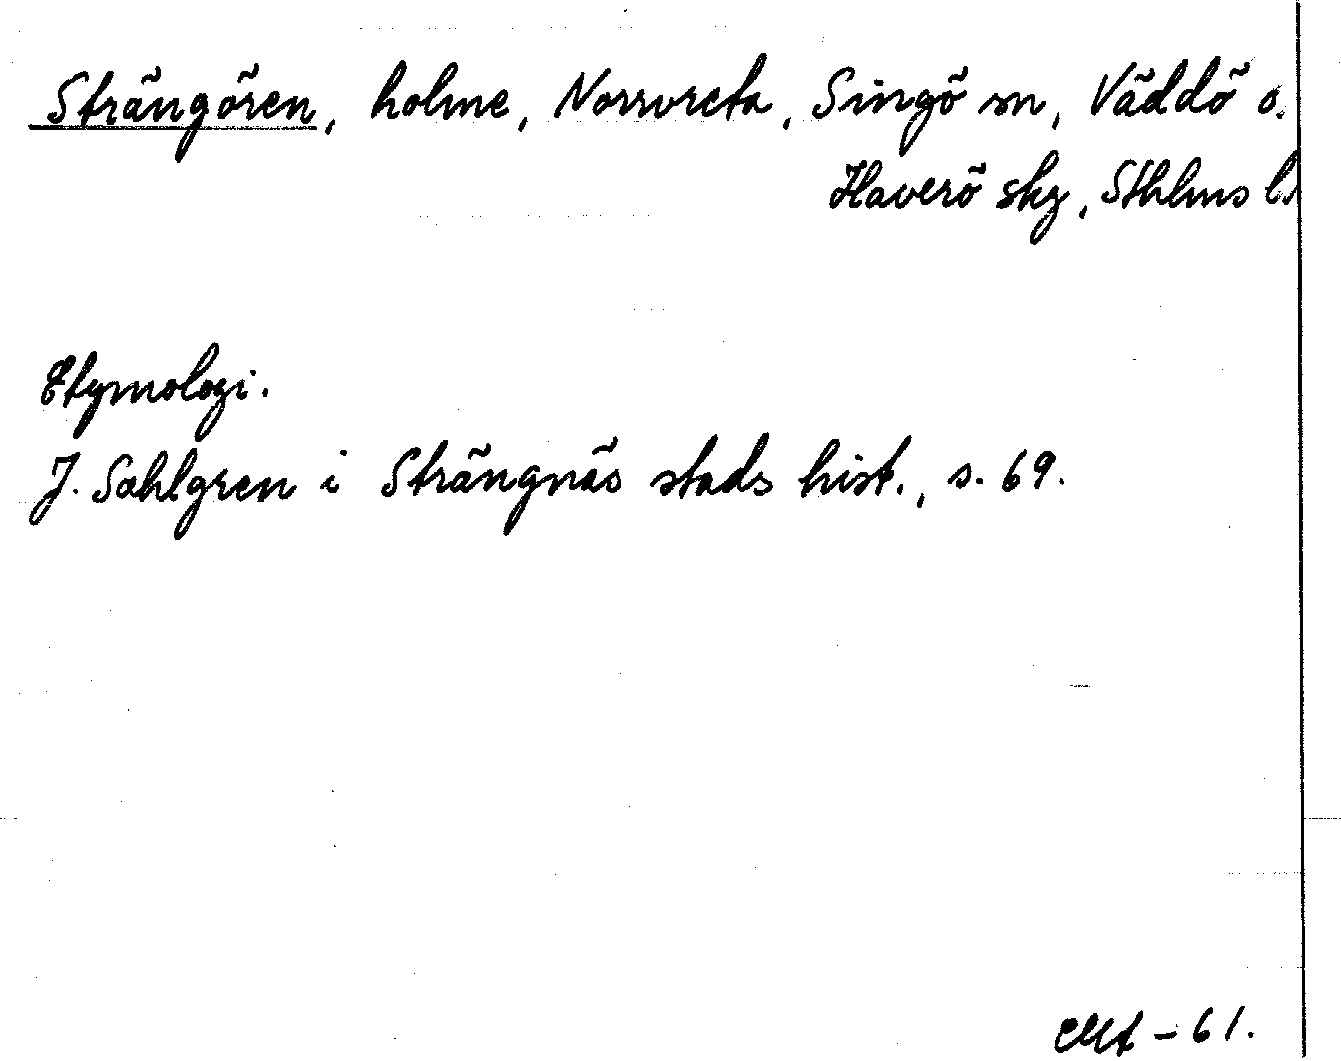 Strängören, holme, Norrvreta, Singö sn, Väddö o.
Haverö skg, Sthlms l.
Etymologi.
J. Sahlgren i Strängnäs stads hist., s. 69.
-61.